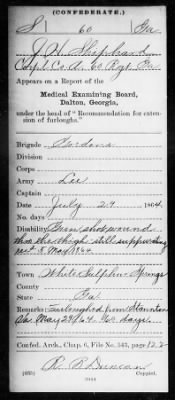 (CONFEDERATE.)
S 60 Ga
J. H. Shepheard
Corpl Co. A, 60 Regt Ga
Appears on a Report of the
Medical Examining Board,
Dalton, Georgia,
under the head of "Recommendation for exten-
sion of furloughs."
Brigade Gordons
Division
Corps
Army Lee
Date July 29 1864.
No. days
Disability Gun shot wound
thro the thigh still suppurating
5 May/64
Town White Sulphur Springs
County
State Ga
Remarks: Furloughed from Staunton
Va May 29/64 60 days
Confed. Arch., Chap. 6, File No. 543, page 122
R. B. Duncan
Copyist.